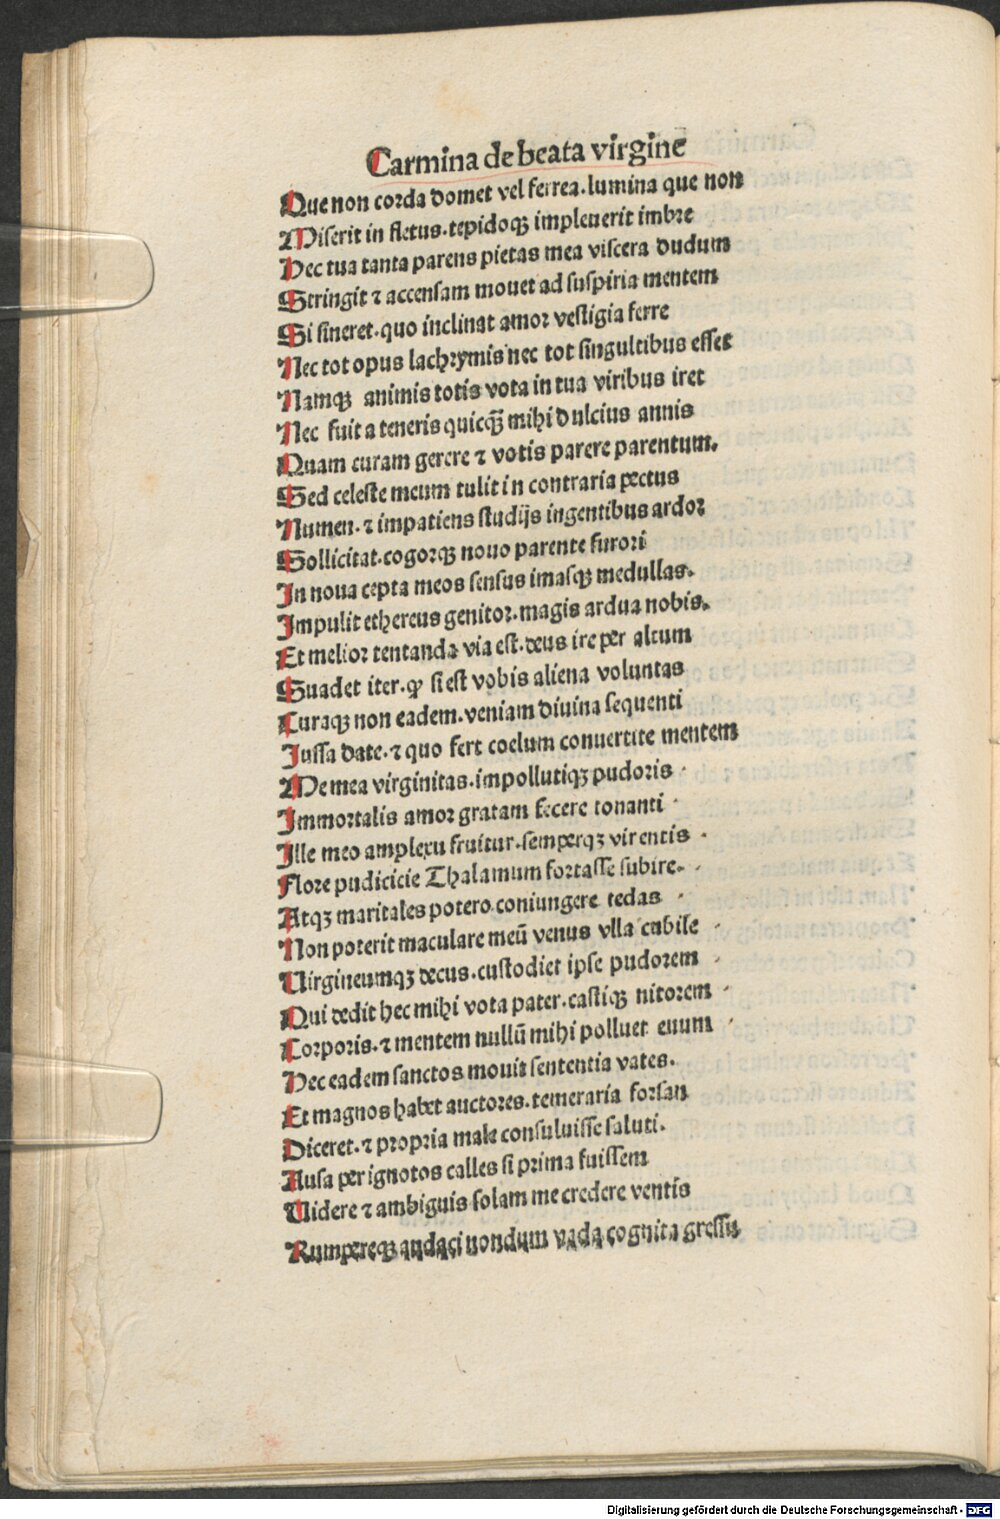 Carmina de beata virgine
Que non corda domet vel ferrea. lumina que non
Miserit in fletus. tepidoqꝫ impleuerit imbre
Hec tua tanta parens pietas mea viscera dudum
Stringit ⁊ accensam mouet ad suspiria mentem
Si sineret. quo inclinat amor vestigia ferre
Nec tot opus lachrymis nec tot singultibus esset
Namqꝫ animis totis vota in tua viribus iret
Nec fuit a teneris quicqȝ̃ mihi dulcius annis
Quam curam gerere ⁊ votis parere parentum.
Sed celeste meum tulit in contraria pectus
Numen. ⁊ impatiens studijs ingentibus ardor
Sollicitat. cogorqꝫ nouo parente furori
In noua cepta meos sensus imasqꝫ medullas.
Impulit ethereus genitor. magis ardua nobis.
Et melior tentanda via est. deus ire per altum
Suadet iter. ꝙ si est vobis aliena voluntas
Curaqꝫ non eadem. veniam diuina sequenti
Iussa date. ⁊ quo fert coelum conuertite mentem
Me mea virginitas. impollutiqꝫ pudoris
Immortalis amor gratam fecere tonanti
Ille meo amplexu fruitur. semperqꝫ virentis
Flore pudicicie Thalamum fortasse subire.
Atqꝫ maritales potero coniungere tedas
Non poterit maculare meū venus vlla cubile
Virgineumqꝫ decus. custodiet ipse pudorem
Qui dedit hec mihi vota pater. castiqꝫ nitorem
Corporis. ⁊ mentem nullū mihi polluet euum
Hec eadem sanctos mouit sententia vates.
Et magnos habet auctores. temeraria forsan
Diceret. ⁊ propria male consuluisse saluti.
Ausa per ignotos calles si prima fuissem
Videre ⁊ ambiguis solam me credere ventis
Rumpereqꝫ audaci nondum vada cognita gressu
Digitalisierung gefördert durch die Deutsche Forschungsgemeinschaft - DFG